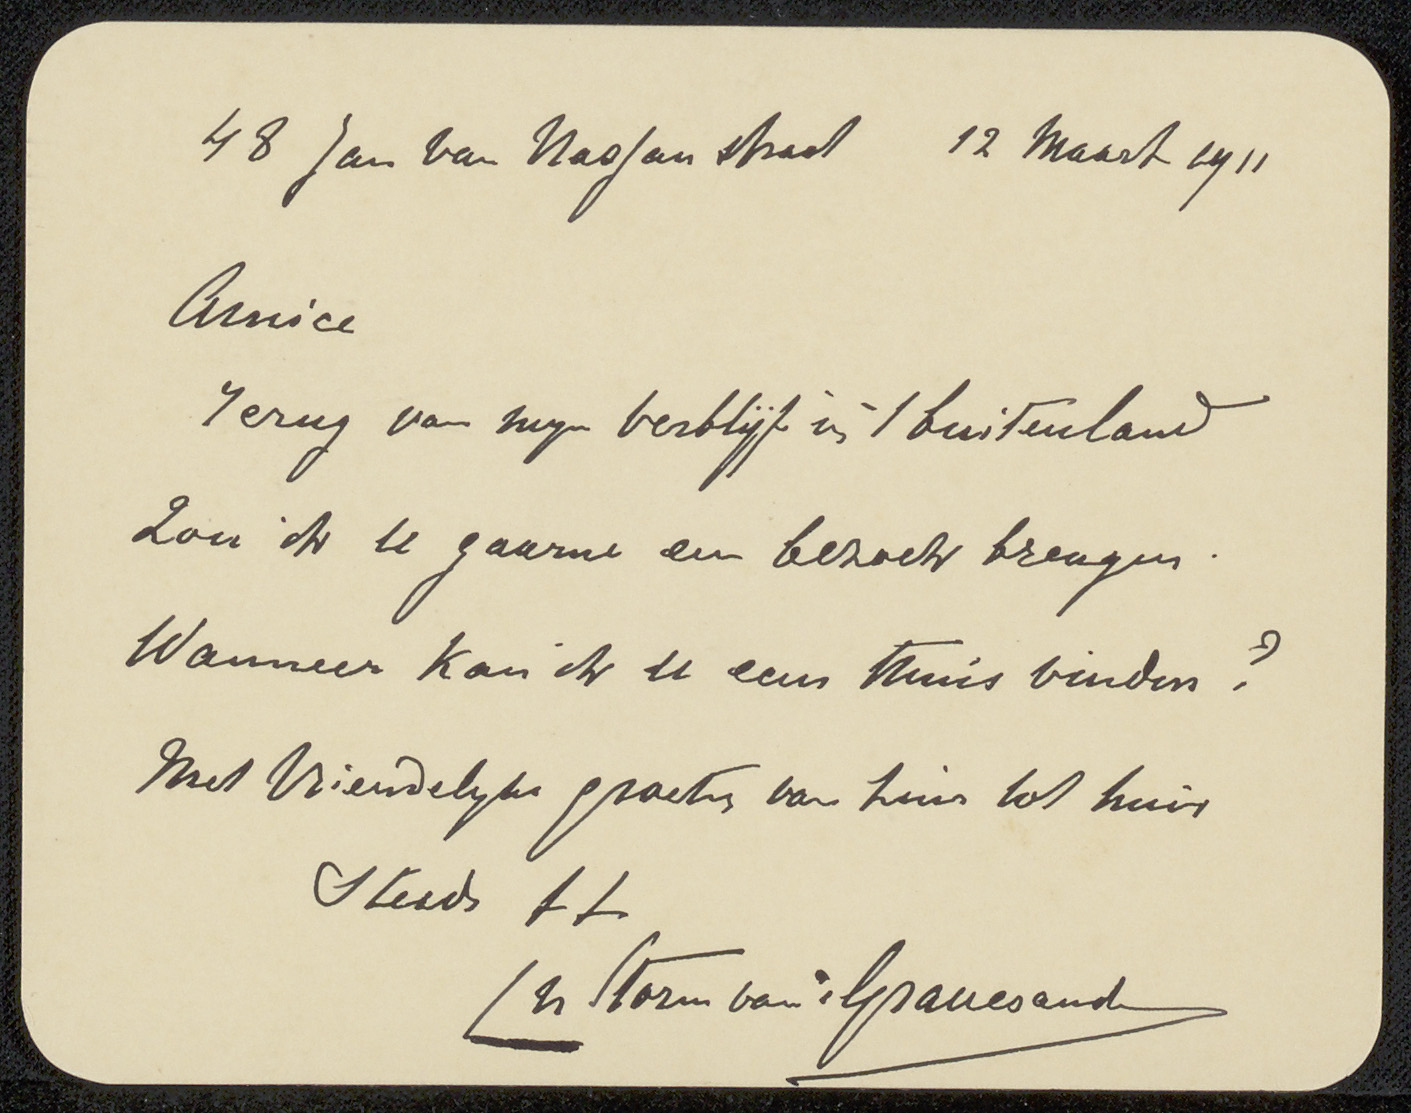 48 Jan van Nassau straat 12 Maart 1911
Amice
Terug van mijn verblijf in 't buitenland
Zou ik U gaarne een bezoek brengen.
Wanneer kan ik U eens thuis vinden?
Met vriendelyke groeten van huis tot huis
Steeds tt
Storm van 's Gravesande